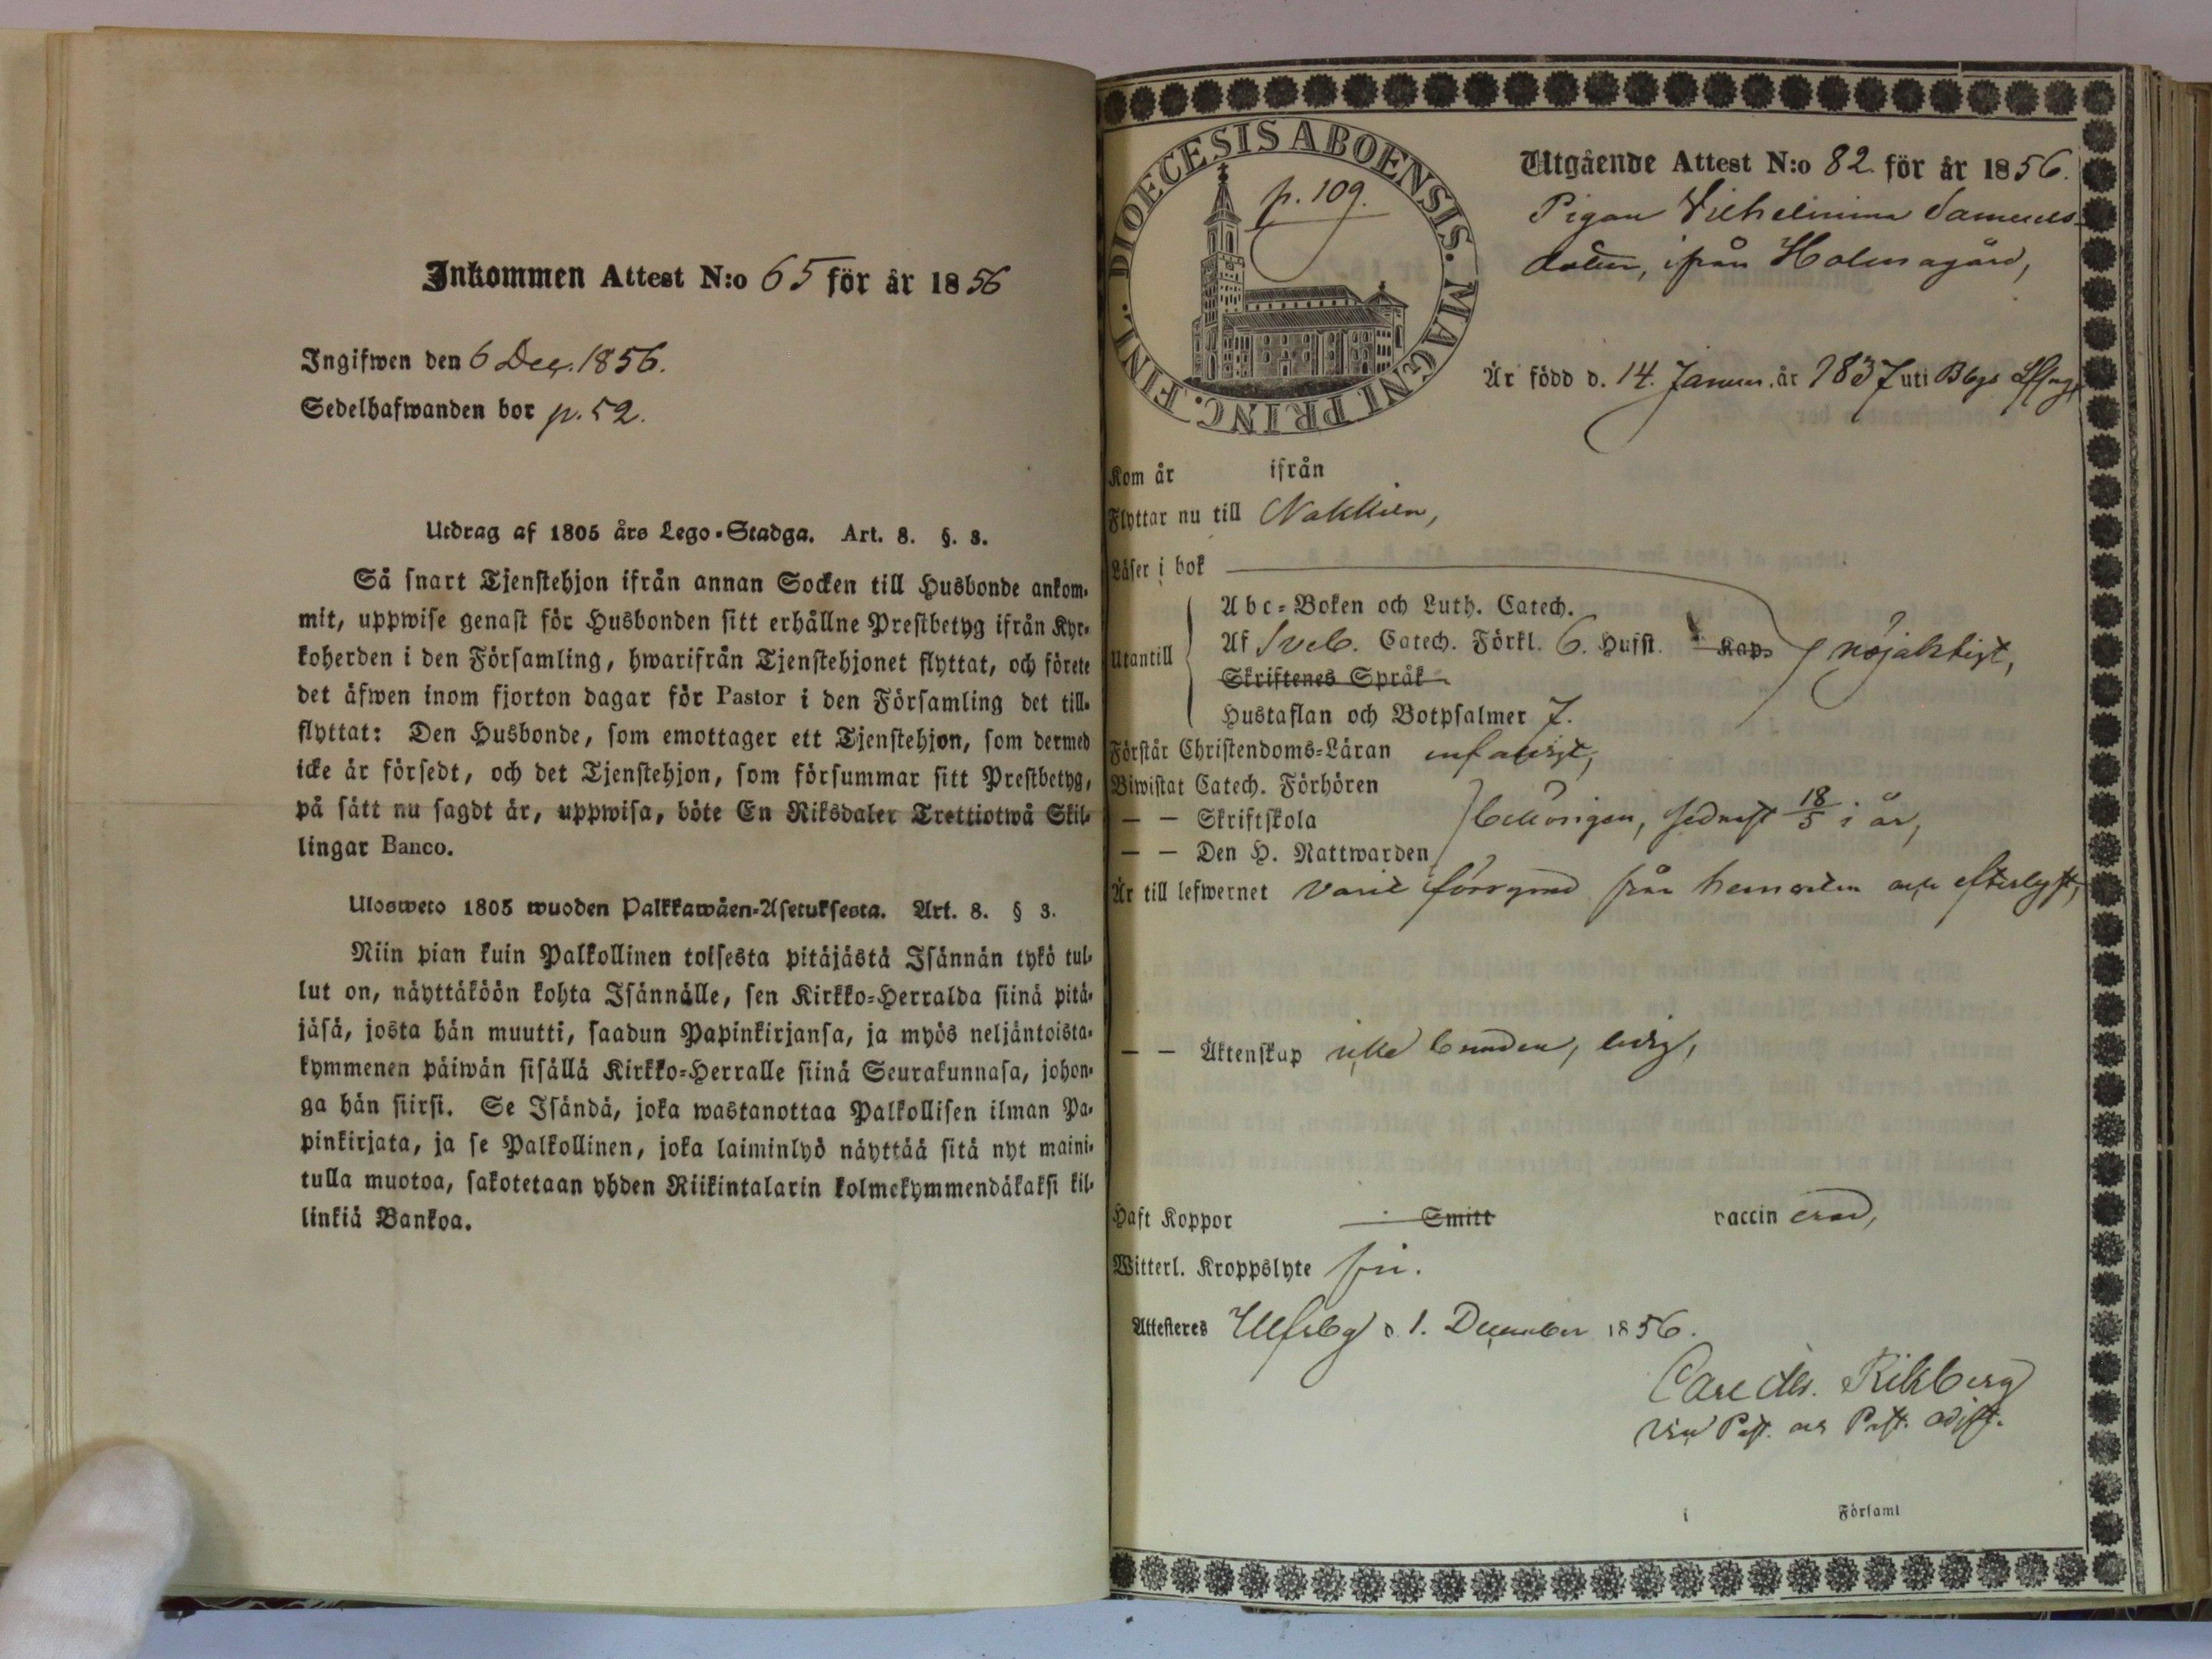 Inkommen Attest N:o 65 för år 1856
Ingifwen den 6 Dec. 1856.
Sedelhafwanden bor p. 52.
Utdrag af 1805 års Lego-Stadga. Art. 8. §. 3.
Så snart Tjenstehjon ifrån annan Socken till Husbonde ankom-
mit, uppwise genast för Husbonden sitt erhållne Prestbetyg ifrån Kyr-
koherden i den Församling, hwarifrån Tjenstehjonet flyttat, och förete
det äfwen inom fjorton dagar för Pastor i den Församling det till-
flyttat: Den Husbonde, som emottager ett Tjenstehjon, som dermed
icke är försedt, och det Tjenstehjon, som försummar sitt Prestbetyg,
på sätt nu sagdt är, uppwisa, böte En Riksdaler Trettiotwå Skil-
lingar Banco.
Ulosweto 1805 wuoden Palkkawäen-Asetuksesta. Art. 8. § 3.
Niin pian kuin Palkollinen toisesta pitäjästä Isännän tykö tul-
lut on, näyttäköön kohta Isännälle, sen Kirkko-Herralda siinä pitä-
jäsä, josta hän muutti, saadun Papinkirjansa, ja myös neljäntoista-
kymmenen päiwän sisällä Kirkko-Herralle siinä Seurakunnasa, johon-
ga hän siirsi. Se Isändä, joka wastanottaa Palkollisen ilman Pa-
pinkirjata, ja se Palkollinen, joka laiminlyö näyttää sitä nyt maini-
tulla muotoa, sakotetaan yhden Riikintalarin kolmekymmendäkaksi kil-
linkiä Bankoa.
DIOECESIS ABOENSIS. MAGNI PRINC. FINL.
p. 109.
Utgående Attest N:o 82 för år 1856.
Pigan Vilhelmina Samuels-
dotter, ifrån Holmagård,
Är född d. 14. Januar. år 1837 uti
Kom år ifrån
Flyttar nu till Nakkila,
Läser i bok
Utantill
Abc-Boken och Luth. Catech.
Af Sveb. Catech. Förkl. 6. Hufst. Kap.
nöjaktigt,
Skriftenes Språk
Hustaflan och Botpsalmer 7.
Förstår Christendoms-Läran enfaldigt,
Biwistat Catech. Förhören
— — Skriftskola
behörigen, sednast 18/5 i år,
— — Den H. Nattwarden
Är till lefwernet varit från hemorten och efterlyst,
— — Äktenskap icke bunden, ledig,
Haft Koppor Smitt vaccin erad,
Witterl. Kroppslyte fri.
Attesteres Ulfsby d. 1. December 1856.
Rikberg
Past.
i Församl